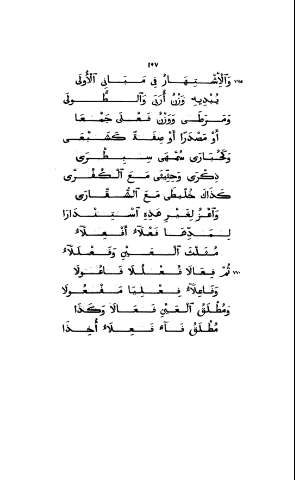 ١٥٧
٧٦٥ وَٱلْٱِشْتِهَارُ فِي مَبَانِي ٱلْأُولَى
يُبْدِيهِ وَزْنُ أُرَبَى وَٱلطُّولَى
وَمَرَطَى وَوَزْنُ فَعْلَى جَمْعَا
أَوْ مَصْدَرًا أَوْ صِفَةً كَشَبْعَى
وَكَحُبَارَى سُمَّهَى سِبَطْرَى
ذِكْرَى وَحِثِّيثَى مَعَ ٱلْكُفُرَّى
كَذَاكَ خُلَّيْطَى مَعَ ٱلشُّقَّارَى
وَٱعْزُ لِغَيْرِ هَذِهِ ٱسْتِنْدَارَا
لِمَدِّهَا فَعْلَآءُ أَفْعِلَآءُ
مُثَلَّثَ ٱلْعَيْنِ وَفَعْلَلَآءُ
٧٧٠ ثُمَّ فِعَالَا فُعْلُلَا فَاعُولَا
وَفَاعِلَآءُ فِعْلِيَا مَفْعُولَا
وَمُطْلَقَ ٱلْعَيْنِ فَعَالَا وَكَذَا
مُطْلَقَ فَآءٍ فَعِلَآءُ أُخِذَا